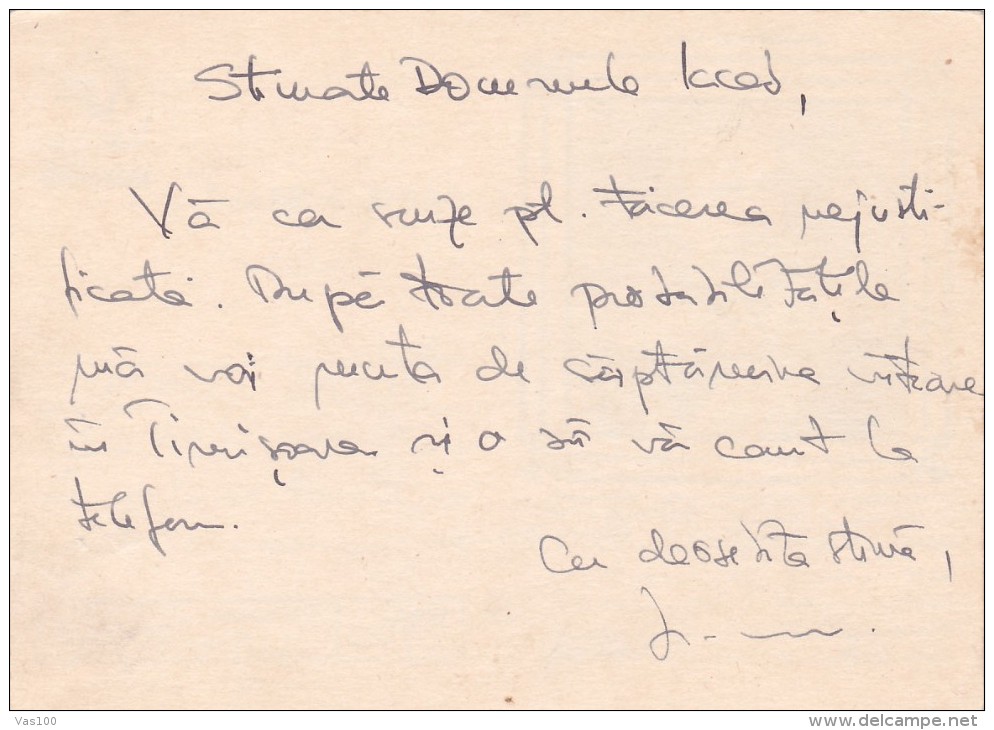 Stimate Domnule
Vă cer scuze pt. tăcerea nejusti-
ficată. După toate probabilitățile
mă voi muta de săptămîna viitoare
în Timișoara și o să vă caut la
telefon.
Cu deosebită stimă,
Vas100
delcampe.net